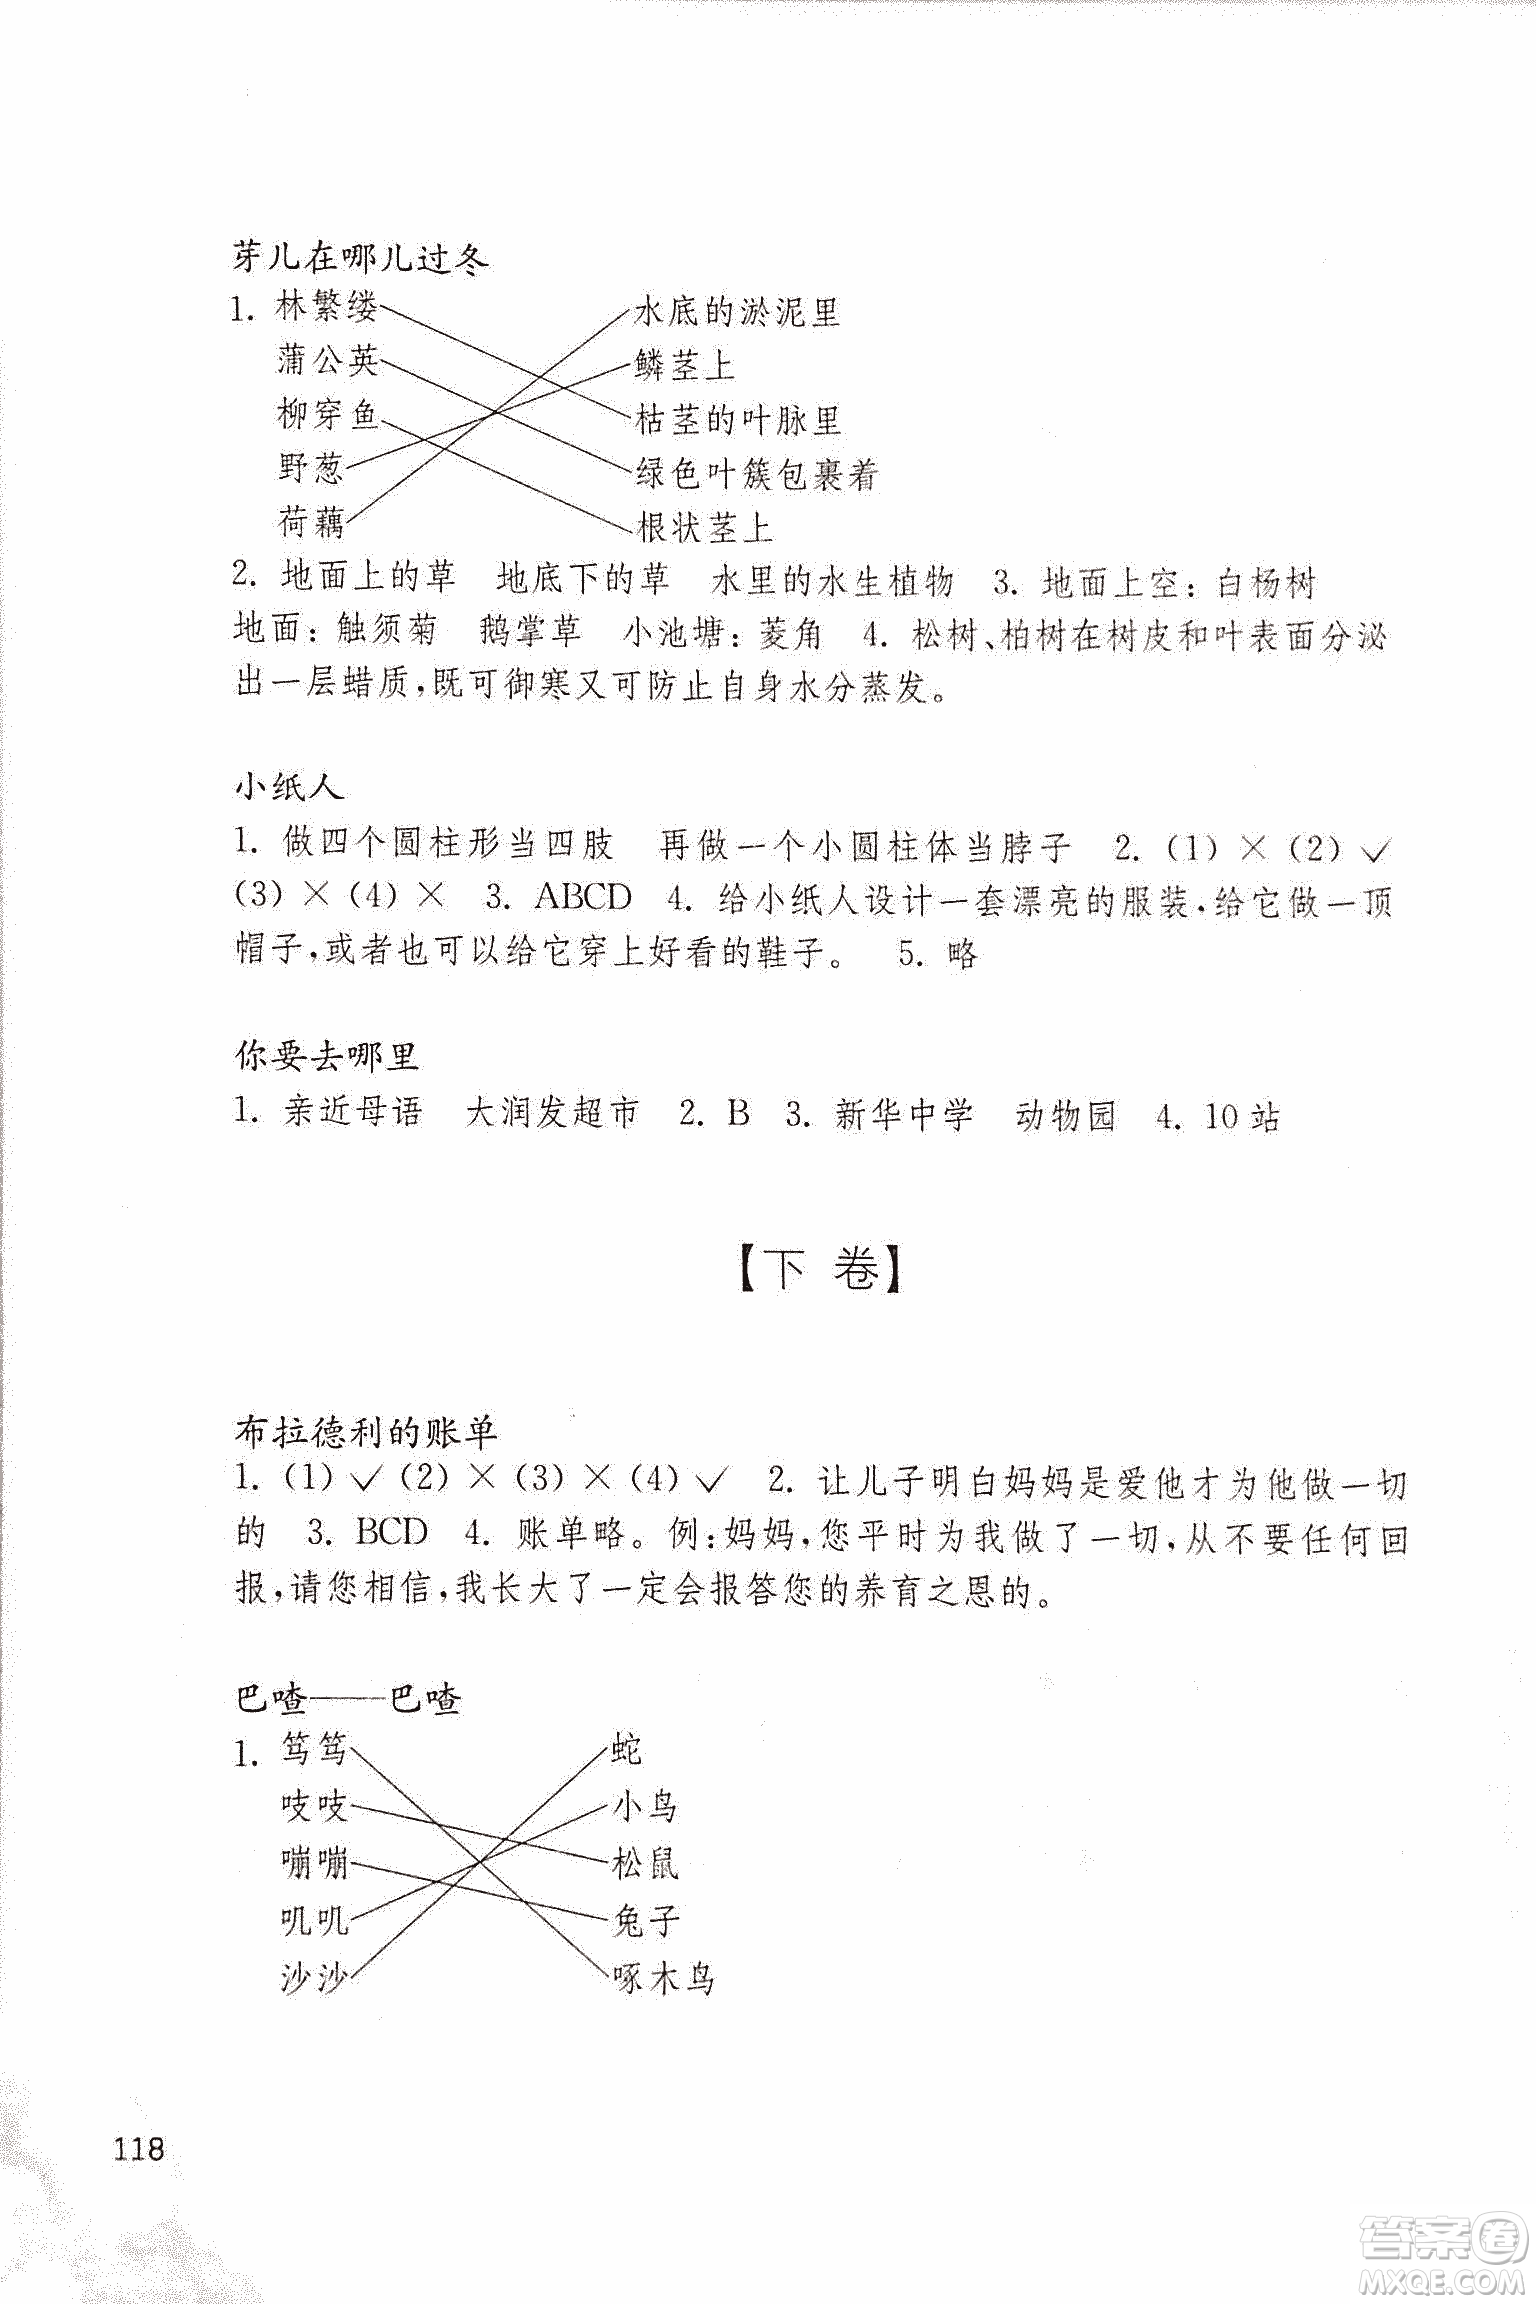 芽儿在哪儿过冬
1. 林繁缕 水底的淤泥里
蒲公英 鳞茎上
柳穿鱼 枯茎的叶脉里
野葱 绿色叶簇包裹着
荷藕 根状茎上
2. 地面上的草 地底下的草 水里的水生植物 3. 地面上空:白杨树
地面:触须菊 鹅掌草 小池塘:菱角 4. 松树、柏树在树皮和叶表面分泌
出一层蜡质,既可御寒又可防止自身水分蒸发。
小纸人
1. 做四个圆柱形当四肢 再做一个小圆柱体当脖子 2. (1) × (2) ✓
(3) × (4) × 3. ABCD 4. 给小纸人设计一套漂亮的服装,给它做一顶
帽子,或者也可以给它穿上好看的鞋子。 5. 略
你要去哪里
1. 亲近母语 大润发超市 2. B 3. 新华中学 动物园 4. 10 站
【下 卷】
布拉德利的账单
1. (1) ✓ (2) × (3) × (4) ✓ 2. 让儿子明白妈妈是爱他才为他做一切
的 3. BCD 4. 账单略。例:妈妈,您平时为我做了一切,从不要任何回
报,请您相信,我长大了一定会报答您的养育之恩的。
巴喳——巴喳
1. 笃笃 蛇
吱吱 小鸟
嘣嘣 松鼠
叽叽 兔子
沙沙 啄木鸟
118
答案卷
MXQE.COM